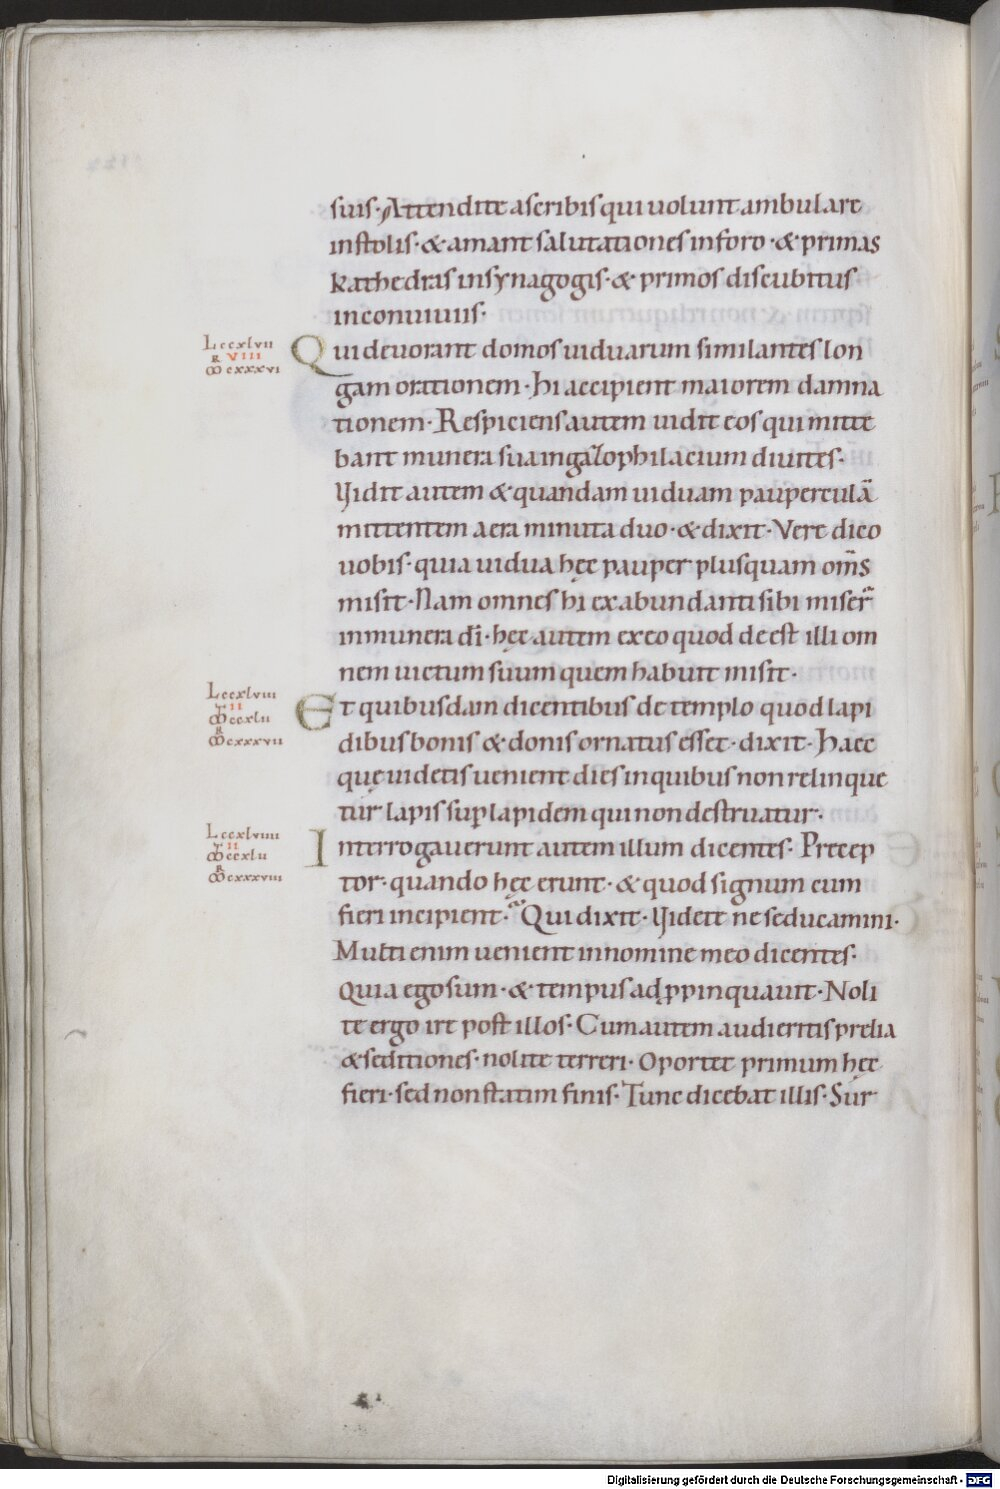 suis· Attendite a scribis qui uolunt ambulare
in stolis· & amant salutationes in foro· & primas
kathedras in synagogis· & primos discubitus
in conuiuiis·
L ccxlvii
R VIII
M cxxxvi
Qui deuorant domos uiduarum similantes lon
gam orationem· hi accipient maiorem damna
tionem· Respiciens autem uidit eos qui mitte
bant munera sua in gazophilacium diuites·
Vidit autem & quandam uiduam pauperculā
mittentem aera minuta duo· & dixit· Vere dico
uobis· quia uidua hęc pauper plus quam om̄s
misit· Nam omnes hi ex abundanti sibi miser̄
in munera dī· hęc autem ex eo quod deest illi om
nem uictum suum quem habuit misit·
L ccxlviii
II
M ccxlii
R
M cxxxvii
Et quibusdam dicentibus de templo quod lapi
dibus bonis & donis ornatus esset· dixit· Haec
quę uidetis uenient dies in quibus non relinque
tur lapis suꝑ lapidem qui non destruatur·
L ccxlviiii
II
M ccxlii
R
M cxxxviii
Interrogauerunt autem illum dicentes· Precep
tor· quando hęc erunt· & quod signum cum
fieri incipient· Qui dixit· Videte ne seducamini·
Multi enim uenient in nomine meo dicentes·
Quia ego sum· & tempus adꝓpinquauit· Noli
te ergo ire post illos· Cum autem audieritis prelia
& seditiones· nolite terreri· Oportet primum hęc
fieri· sed non statim finis· Tunc dicebat illis· Sur
Digitalisierung gefördert durch die Deutsche Forschungsgemeinschaft - DFG